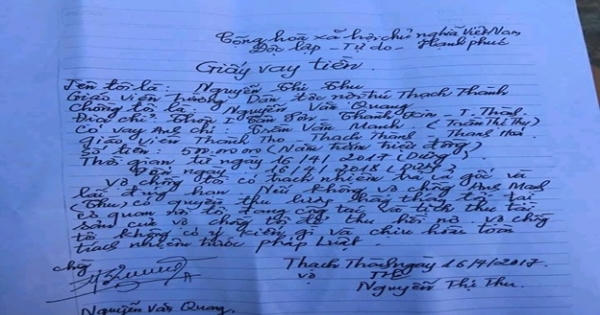 Cộng hoà xã hội chủ nghĩa Việt Nam
Độc lập - Tự do - Hạnh phúc
Giấy vay tiền.
Tên tôi là: Nguyễn Thị Thu
Giáo viên trường Dân tộc nội trú Thạch Thành
Chồng tôi là: Nguyễn Văn Quang
Địa chỉ: Thôn Thành - T. Thành
Có vay Anh chị: Trần Văn Mạnh (Trần Thị Thy)
giáo viên Thành Thọ - Thạch Thành - Thanh Hoá
Số tiền: 500.000.000 (Năm trăm triệu đồng)
Thời gian từ ngày 16/4/2017 (Dương)
Đến ngày 16/4/2018
Vợ chồng tôi có trách nhiệm trả cả gốc và
lãi đúng hạn. Nếu không vợ chồng Anh Mạnh
(Thu) có quyền thu lương hàng tháng tôi tại
cơ quan mà tôi đang công tác và tịch thu tài
sản của vợ chồng tôi để thu hồi nợ. Vợ chồng
tôi không có ý kiến gì và chịu hoàn toàn
trách nhiệm trước pháp luật.
chồng
Thạch Thành ngày 16/4/2017.
vợ
Thu
Nguyễn Thị Thu.
Nguyễn Văn Quang.